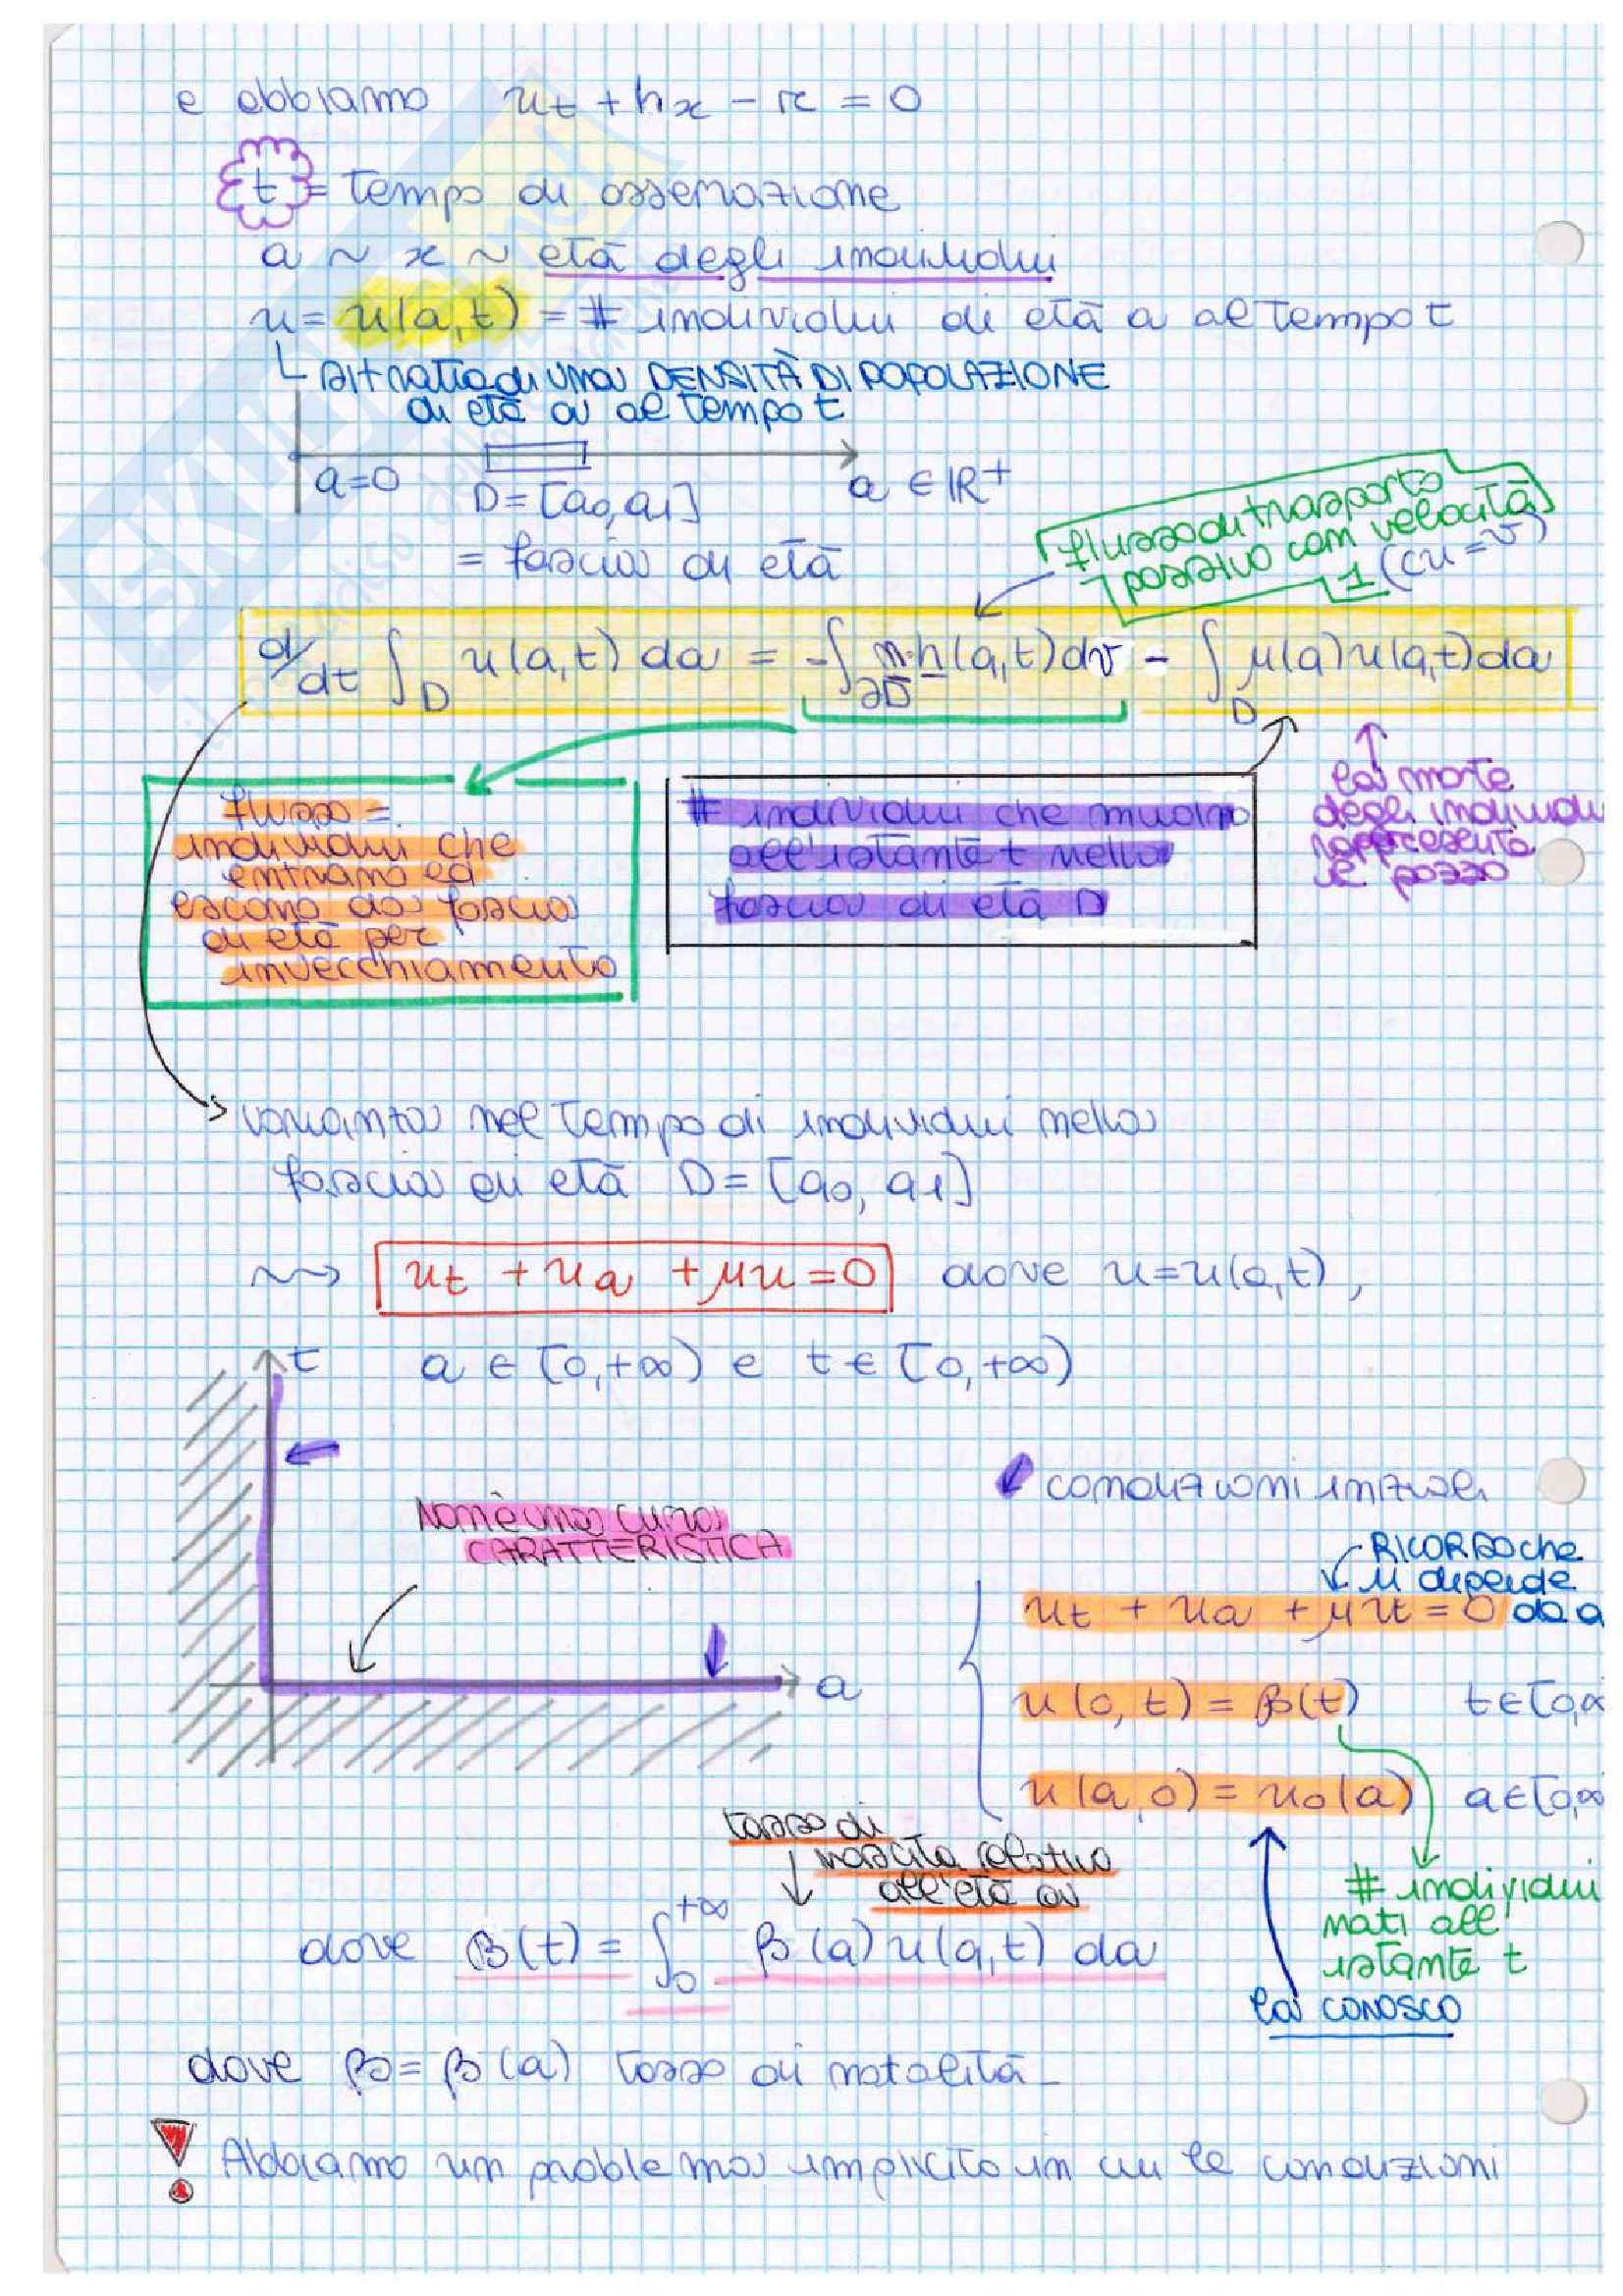 e abbiamo u_t + h_x - r = 0
t = tempo di osservazione
a ~ x ~ età degli individui
u = u(a,t) = # individui di età a al tempo t
si tratta di una DENSITÀ DI POPOLAZIONE
di età a al tempo t
a=0
D=[a0,a1]
a ∈ IR+
= fascia di età
flusso di trasporto
positivo con velocità
1 (cu = v)
d/dt ∫_D u(a,t) da = -∫_∂D n·h(a,t)dv - ∫_D μ(a)u(a,t)da
flusso =
individui che
entrano ed
escono da fascia
di età per
invecchiamento
# individui che muoiono
all'istante t nella
fascia di età D
la morte
degli individui
rappresenta
il pozzo
varianza nel tempo di individui nella
fascia di età D=[a0, a1]
⇝ u_t + u_a + μu = 0 dove u=u(a,t),
t
a ∈ [0,+∞) e t ∈ [0,+∞)
Non è una curva
CARATTERISTICA
a
condizioni iniziali
RICORDO che
μ dipende
da a
u_t + u_a + μu = 0
u(0,t) = B(t) t∈[0,∞
u(a,0) = u0(a) a∈[0,∞
# individui
nati all'
istante t
la CONOSCO
tasso di
nascita relativo
all'età a
dove B(t) = ∫_0^+∞ β(a)u(a,t) da
dove β = β(a) tasso di natalità
Abbiamo un problema implicito in cui le condizioni